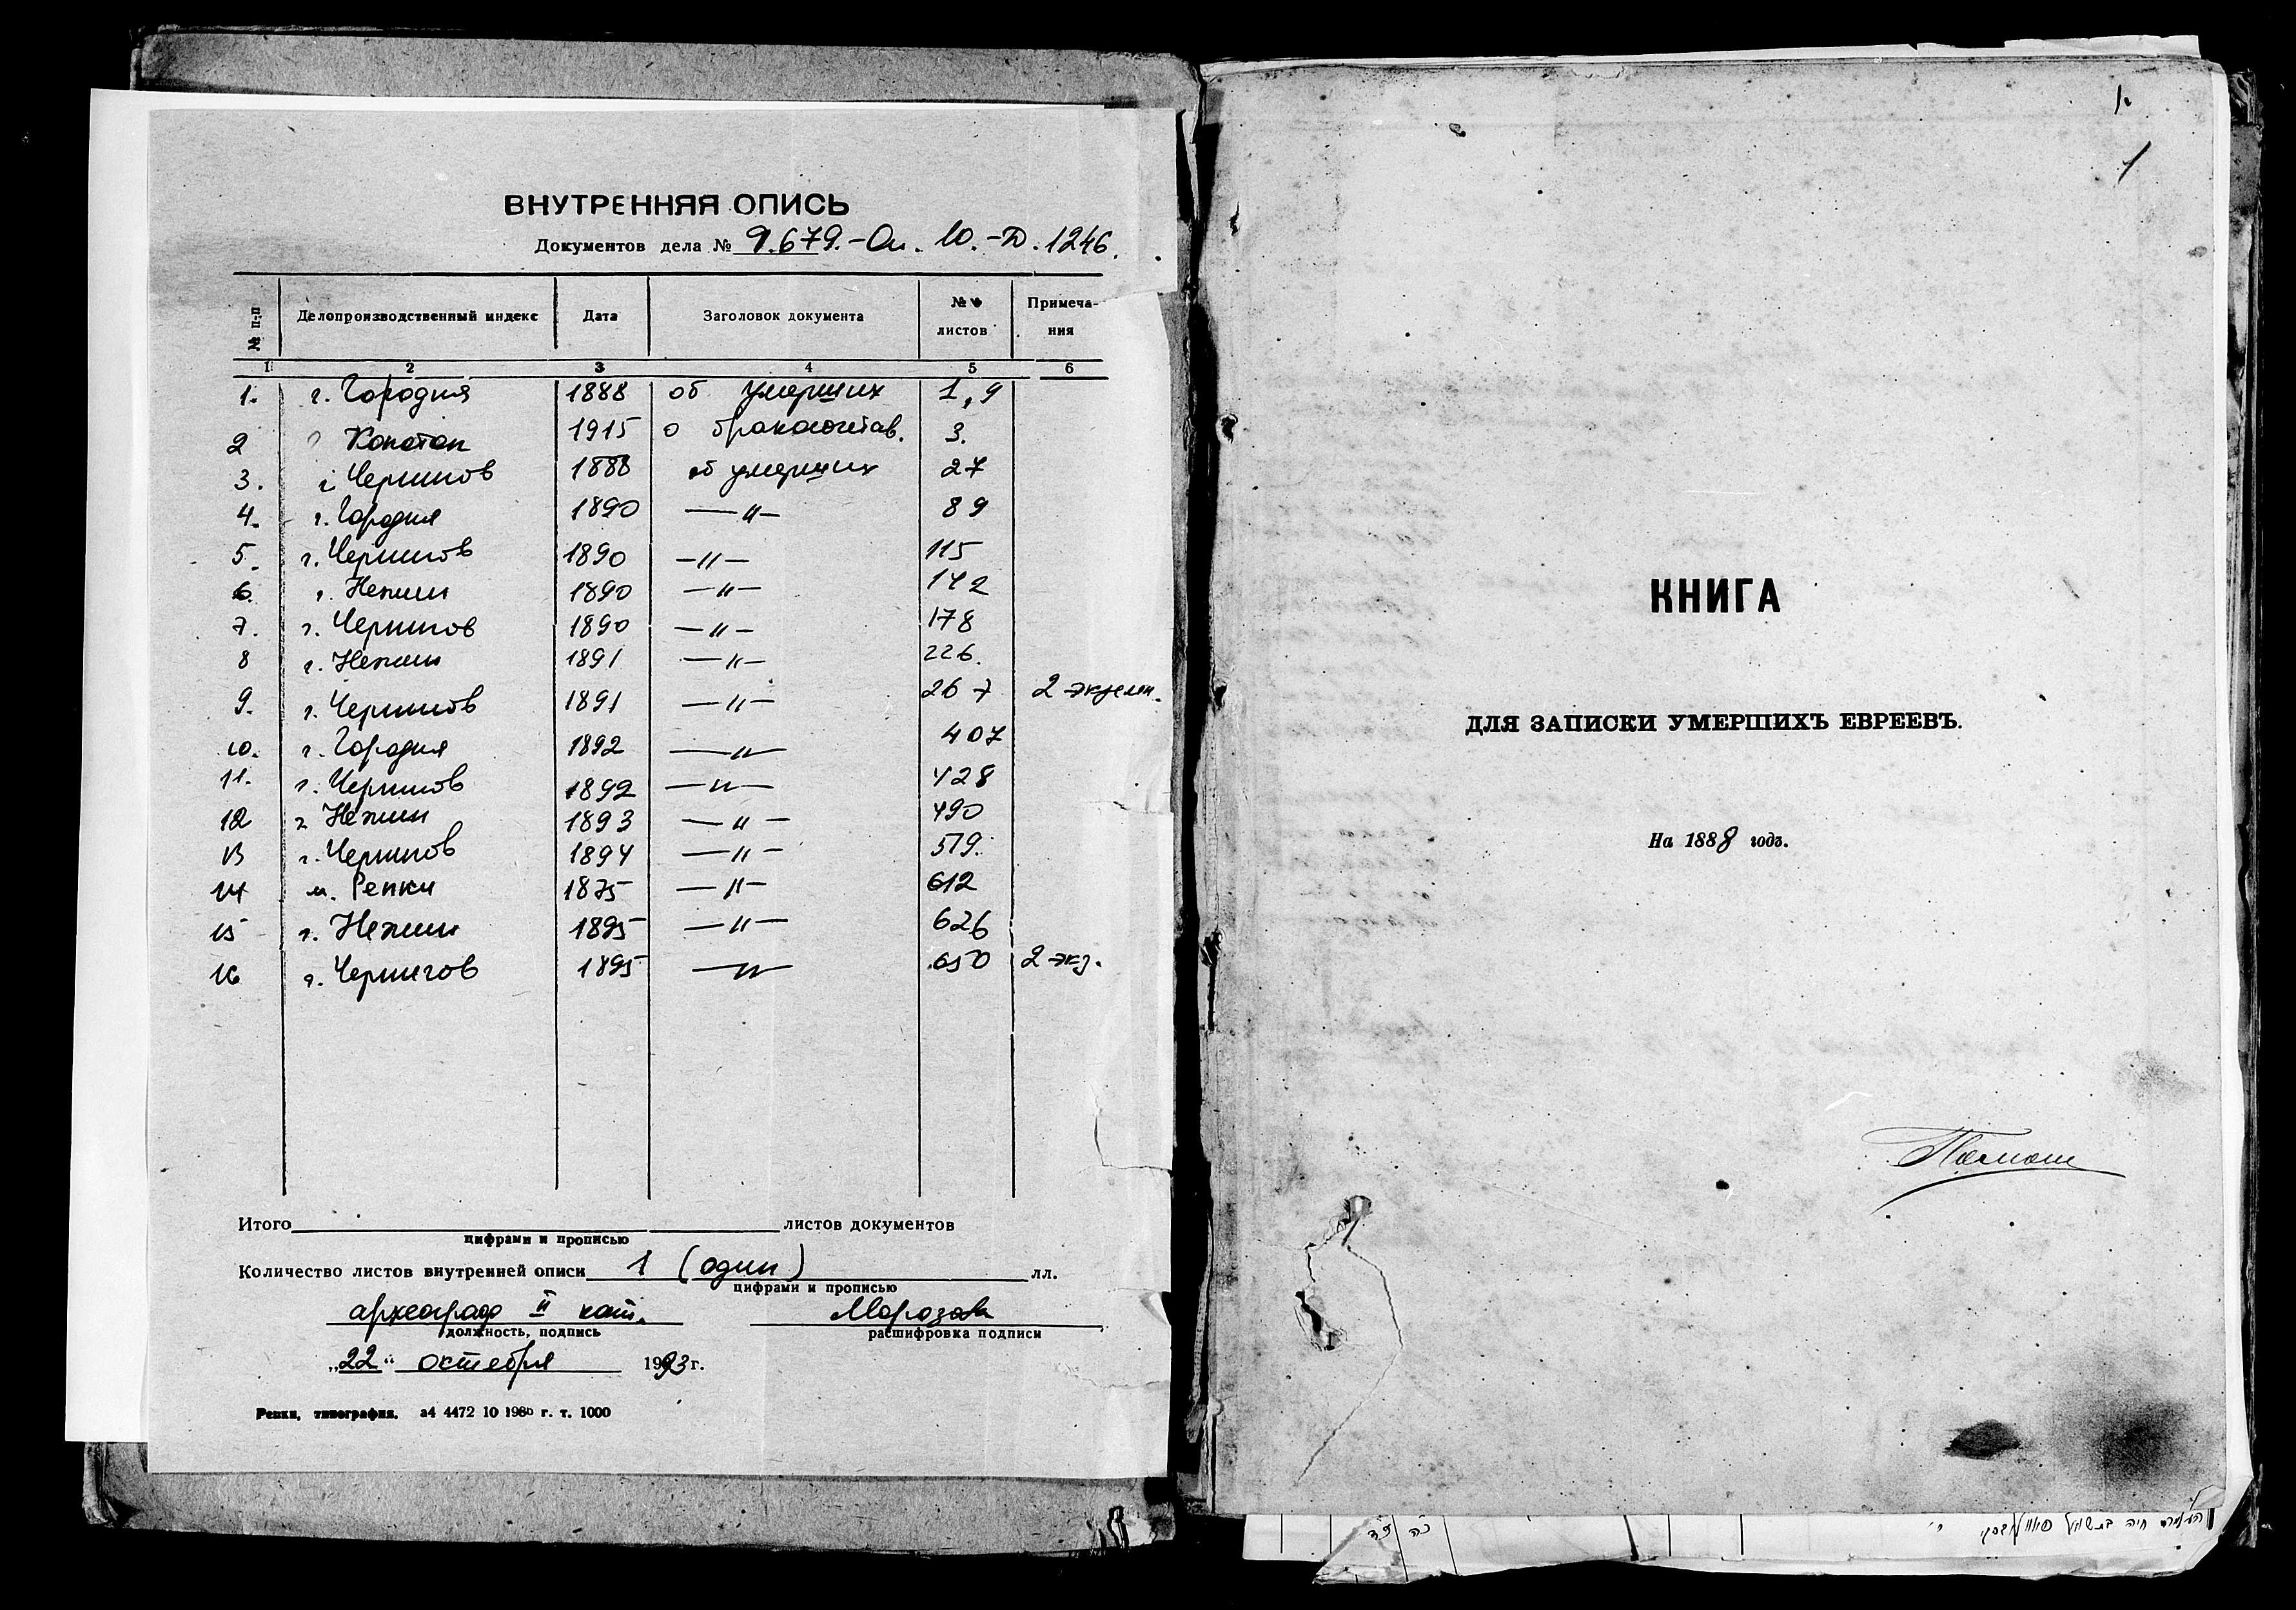 ВНУТРЕННЯЯ ОПИСЬ
Документов дела № Ф.679.-Оп. 10.-Д. 1246.
№ п.п Делопроизводственный индекс Дата Заголовок документа №№ листов Примечания
1 2 3 4 5 6
1. г. Городня 1888 об умерших 1, 9
2 г Конотоп 1915 о бракосочетав. 3.
3. г Чернигов 1888 об умерших 27
4. г. Городня 1890 —"— 89
5. г. Чернигов 1890 —"— 115
6. г. Нежин 1890 —"— 142
7. г. Чернигов 1890 —"— 178
8 г. Нежин 1891 —"— 226.
9. г. Чернигов 1891 —"— 267 2 экземп.
10. г. Городня 1892 —"— 407
11. г. Чернигов 1892 —"— 428
12 г Нежин 1893 —"— 490
13 г. Чернигов 1894 —"— 519.
14 м. Репки 1875 —"— 612
15 г. Нежин 1895 —"— 626
16 г. Чернигов 1895 —"— 650 2 экз.
Итого листов документов
цифрами и прописью
Количество листов внутренней описи 1 (один) лл.
цифрами и прописью
археограф II кат. Морозова
должность, подпись расшифровка подписи
„22“ октября 1993 г.
Репки, типография. з4 4472 10 1986 г. т. 1000
1.
1
КНИГА
ДЛЯ ЗАПИСКИ УМЕРШИХЪ ЕВРЕЕВЪ.
На 1888 годъ.